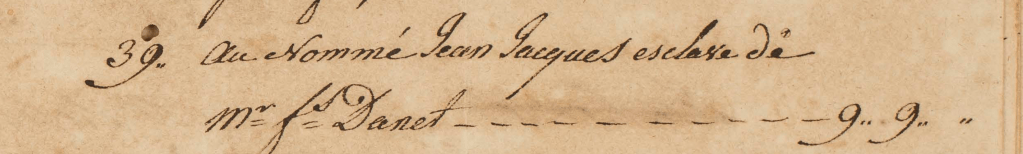 39.. au Nommé Jean Jacques esclave de
Mr. fs. Danet - - - - - - - - - - - - 9.. 9.. ..